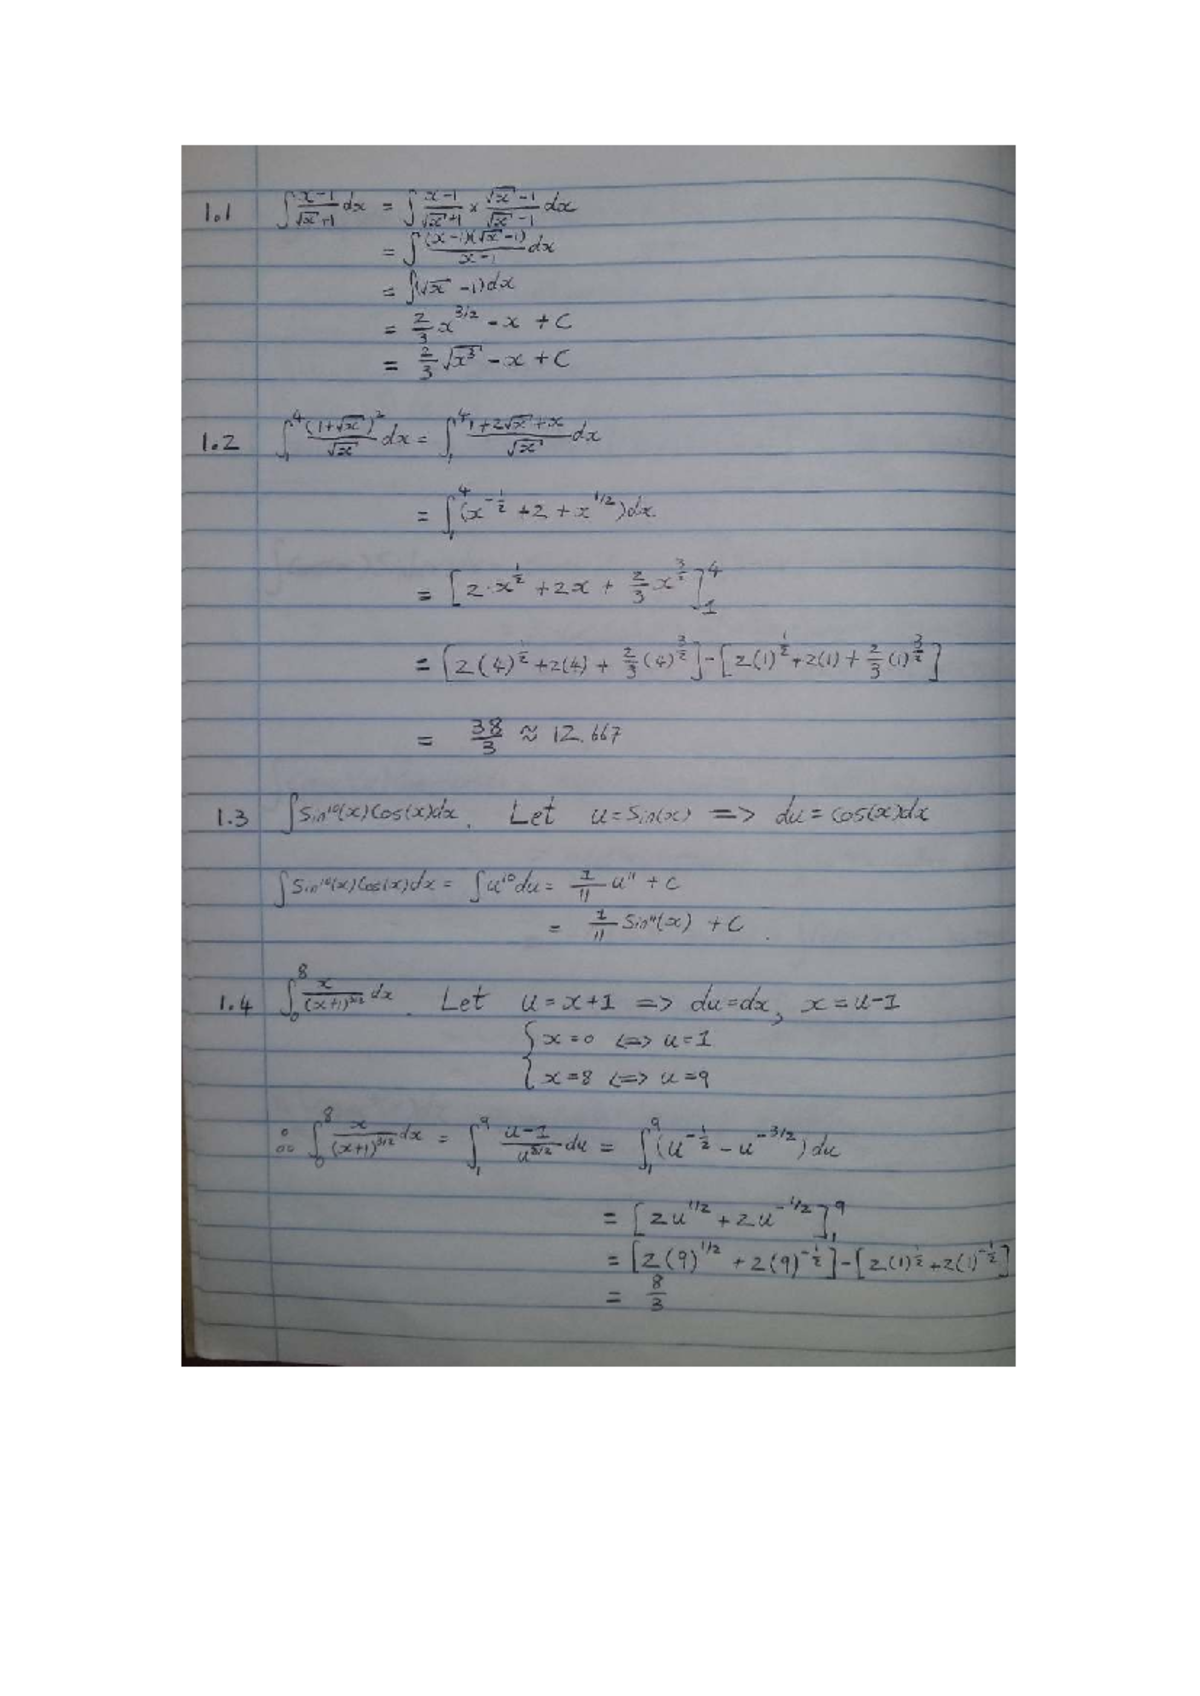 1.1 ∫ (x-1)/(√x+1) dx = ∫ (x-1)/(√x+1) × (√x-1)/(√x-1) dx
= ∫ (x-1)(√x-1)/(x-1) dx
= ∫(√x -1)dx
= 2/3 x^(3/2) - x + C
= 2/3 √x³ - x + C
1.2 ∫₁⁴ (1+√x)²/√x dx = ∫₁⁴ (1+2√x+x)/√x dx
= ∫₁⁴ (x^(-1/2) + 2 + x^(1/2))dx.
= [2·x^(1/2) + 2x + 2/3 x^(3/2)]₁⁴
= [2(4)^(1/2) + 2(4) + 2/3 (4)^(3/2)] - [2(1)^(1/2) + 2(1) + 2/3 (1)^(3/2)]
= 38/3 ≈ 12.667
1.3 ∫Sin¹⁰(x)Cos(x)dx. Let u = Sin(x) => du = cos(x)dx
∫Sin¹⁰(x)Cos(x)dx = ∫u¹⁰du = 1/11 u¹¹ + C
= 1/11 Sin¹¹(x) + C.
1.4 ∫₀⁸ x/(x+1)^(3/2) dx. Let u = x+1 => du = dx, x = u-1
{x=0 <=> u=1
x=8 <=> u=9
∴ ∫₀⁸ x/(x+1)^(3/2) dx = ∫₁⁹ (u-1)/u^(3/2) du = ∫₁⁹ (u^(-1/2) - u^(-3/2))du
= [2u^(1/2) + 2u^(-1/2)]₁⁹
= [2(9)^(1/2) + 2(9)^(-1/2)] - [2(1)^(1/2) + 2(1)^(-1/2)]
= 8/3